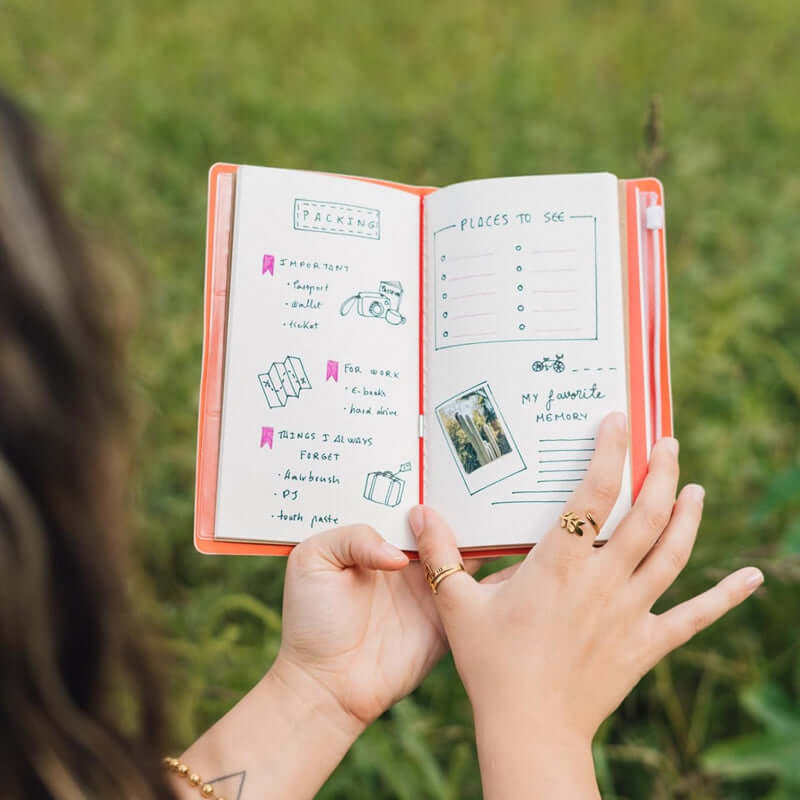 PACKING
IMPORTANT
• Passport
• wallet
• ticket
FOR WORK
• E-books
• hard drive
THINGS I ALWAYS
FORGET
• Hairbrush
• PJ
• tooth paste
PLACES TO SEE
MY favorite
MEMORY